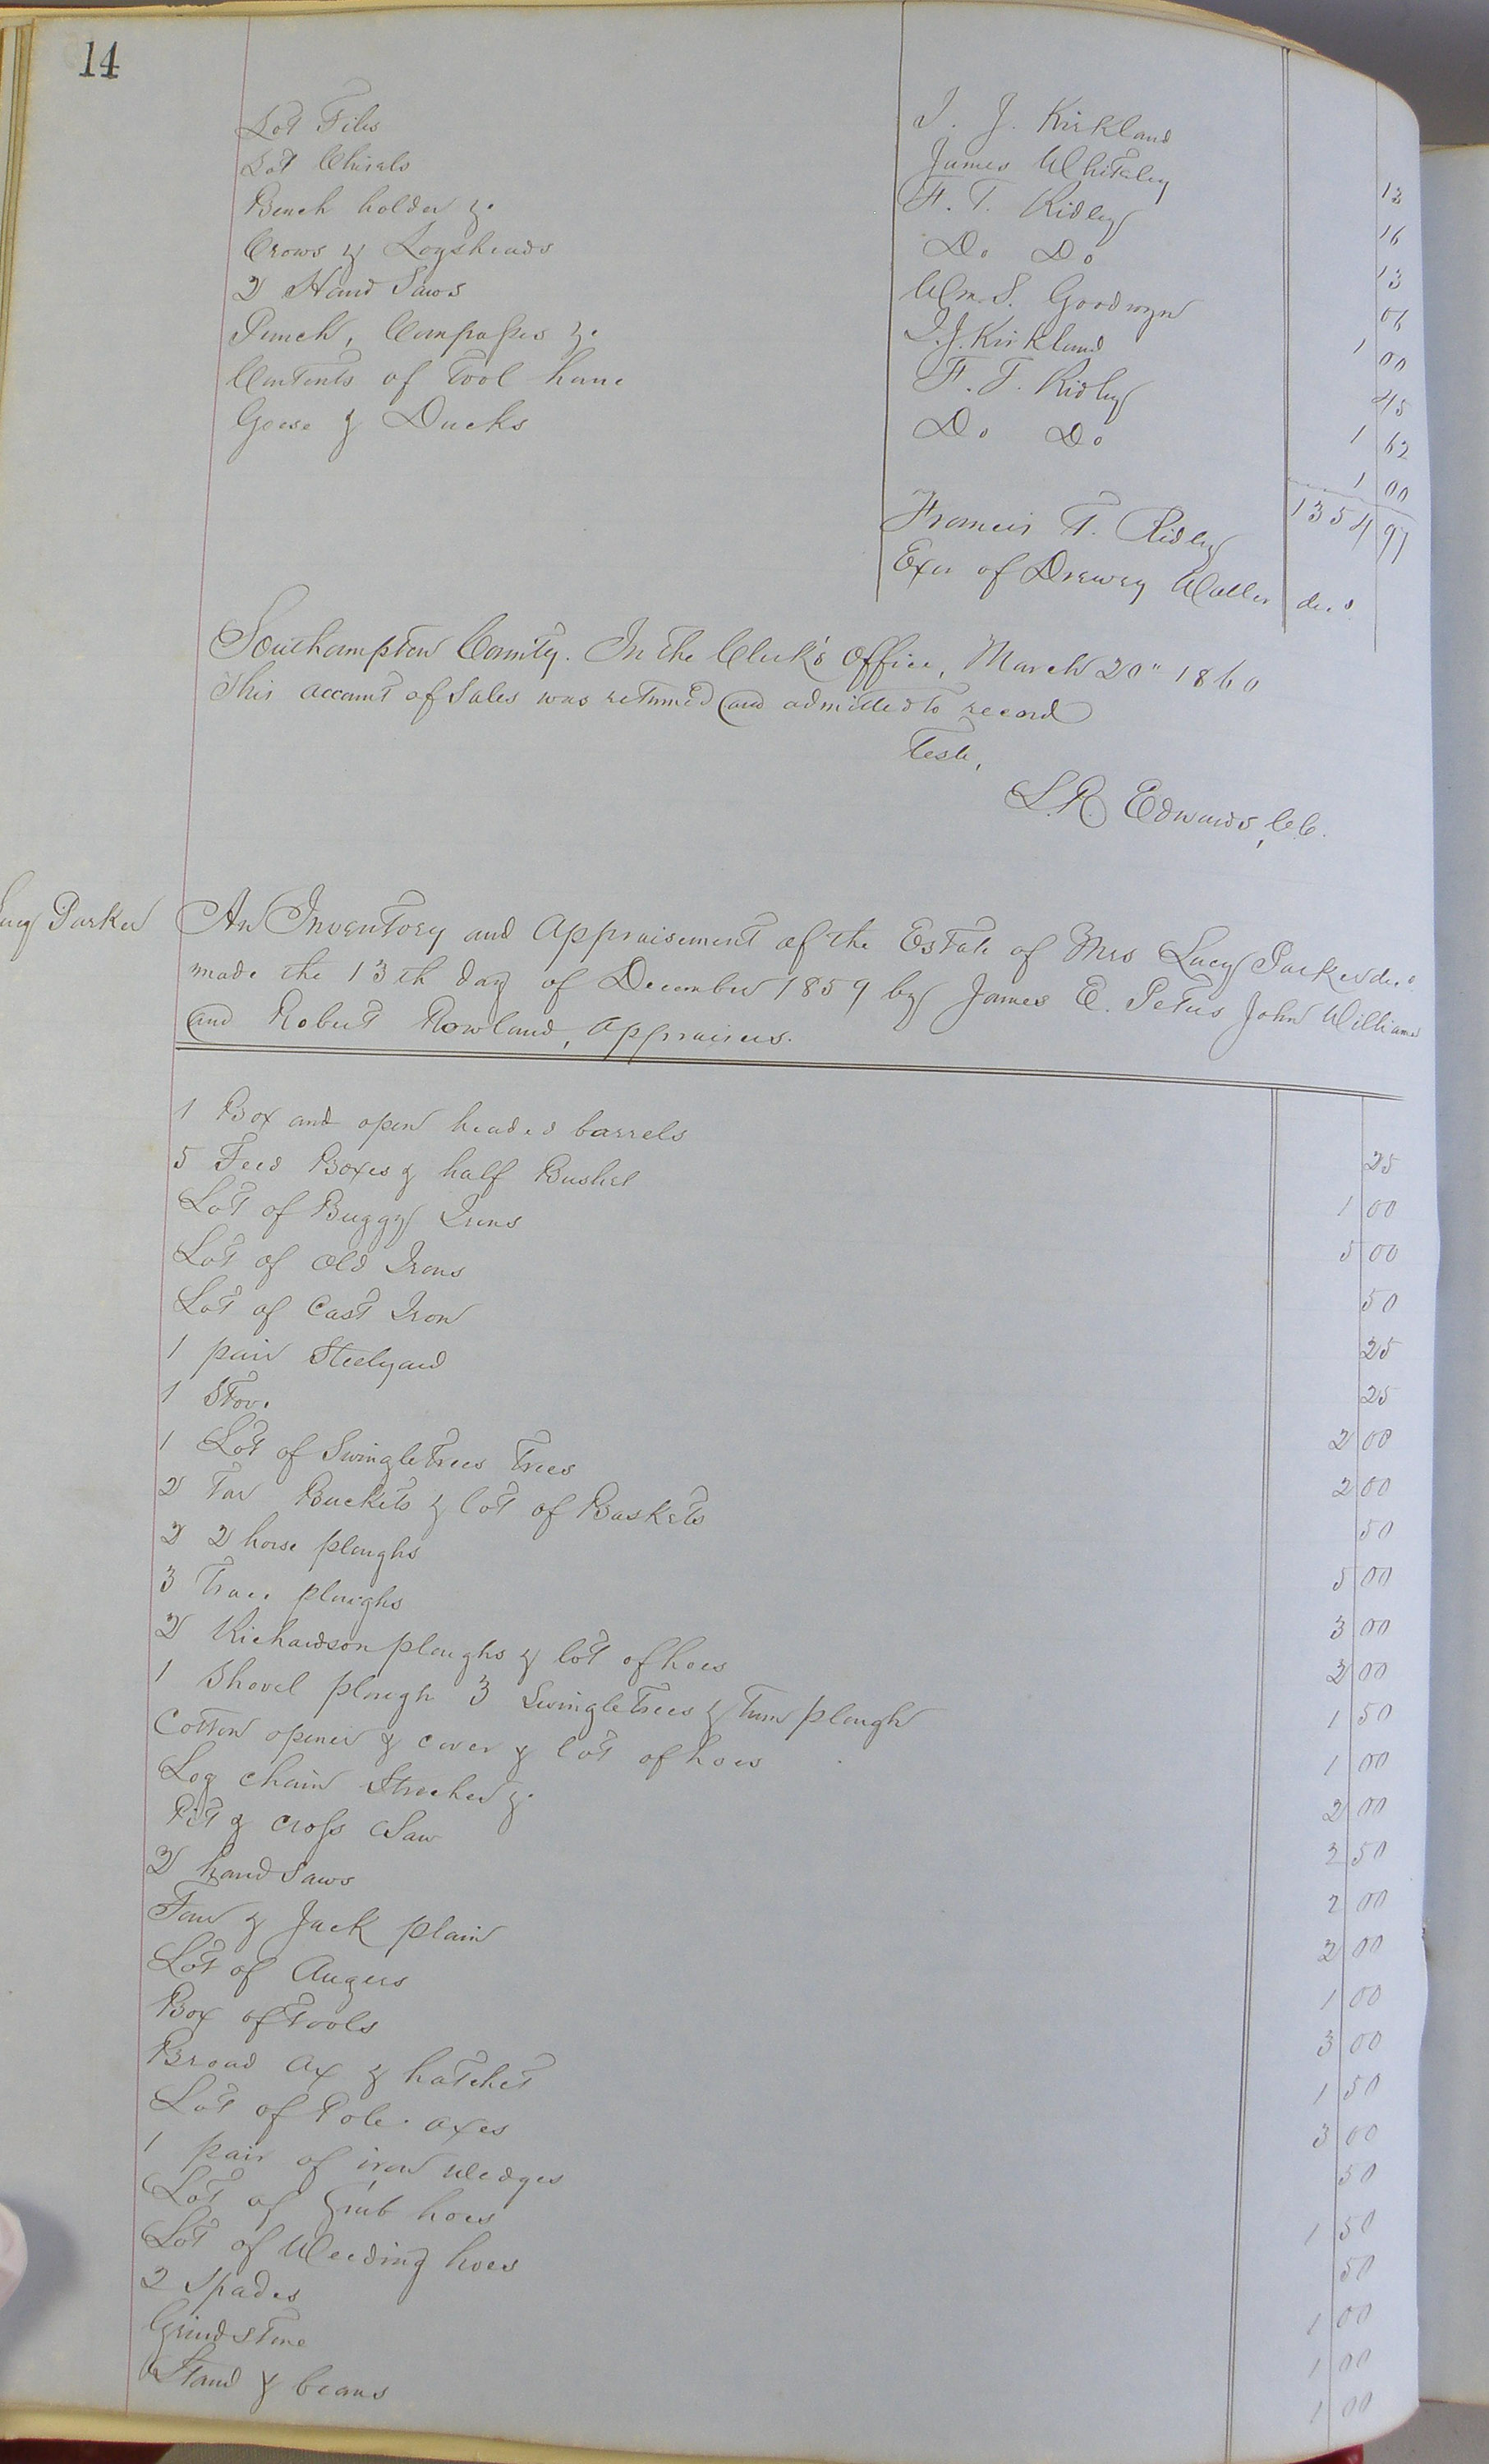 14
Lot Files J. J. Kirkland 13
Lot Chisels James Whiteley 16
Bench holder &c F. T. Ridley 13
Crows & Logsheads Do Do 06
2 Hand Saws Wm S. Goodwyn 1 00
Punch, Compasses &c J. J. Kirkland 45
Contents of Tool house F. T. Ridley 1 62
Geese & Ducks Do Do 1 00
1354 97
Francis T. Ridley
Exor of Drewry Waller decd
Southampton County. In the Clerk's Office, March 20" 1860
This account of Sales was returned and admitted to record
Teste,
L. R. Edwards, C.C.
Lucy Parker
An Inventory and Appraisement of the Estate of Mrs Lucy Parker decd
made the 13th day of December 1859 by James E. Petus John Williams
and Robert Rowland, Appraisers.
1 Box and open headed barrels 25
5 Feed Boxes & half Bushel 1 00
Lot of Buggy Irons 5 00
Lot of Old Irons 50
Lot of Cast Iron 25
1 pair Steelyard 25
1 Stove 2 00
1 Lot of Swingletrees Trees 2 00
2 Tar Buckets & lot of Baskets 50
2 2 horse ploughs 5 00
3 Trace ploughs 3 00
2 Richardson ploughs & lot of hoes 2 00
1 Shovel plough 3 Swingletrees & Turn plough 1 50
Cotton opener & cover & lot of hoes 1 00
Log chain Strecher &c 2 00
Pit & Cross Saw 2 50
2 hand Saws 2 00
Fow & Jack plain 2 00
Lot of Augers 1 00
Box of Tools 3 00
Broad Ax & hatchet 1 50
Lot of Pole axes 3 00
1 pair of iron wedges 50
Lot of Grub hoes 1 50
Lot of Weeding hoes 50
2 Spades 1 00
Grindstone 1 00
Stand & beans 1 00